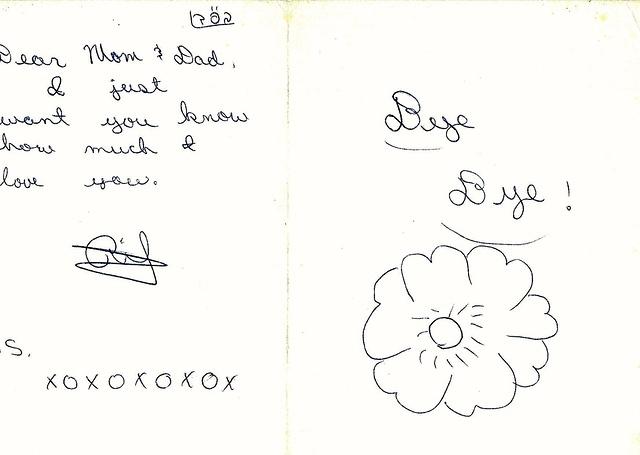 Dear Mom & Dad,
I just
want you know
how much I
love you.
S.
XOXOXOXOX
Bye
Bye!